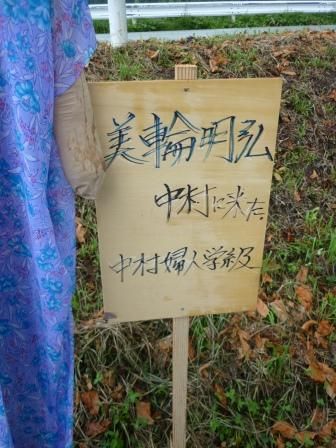 美輪明弘
中村に来た
中村婦人学級